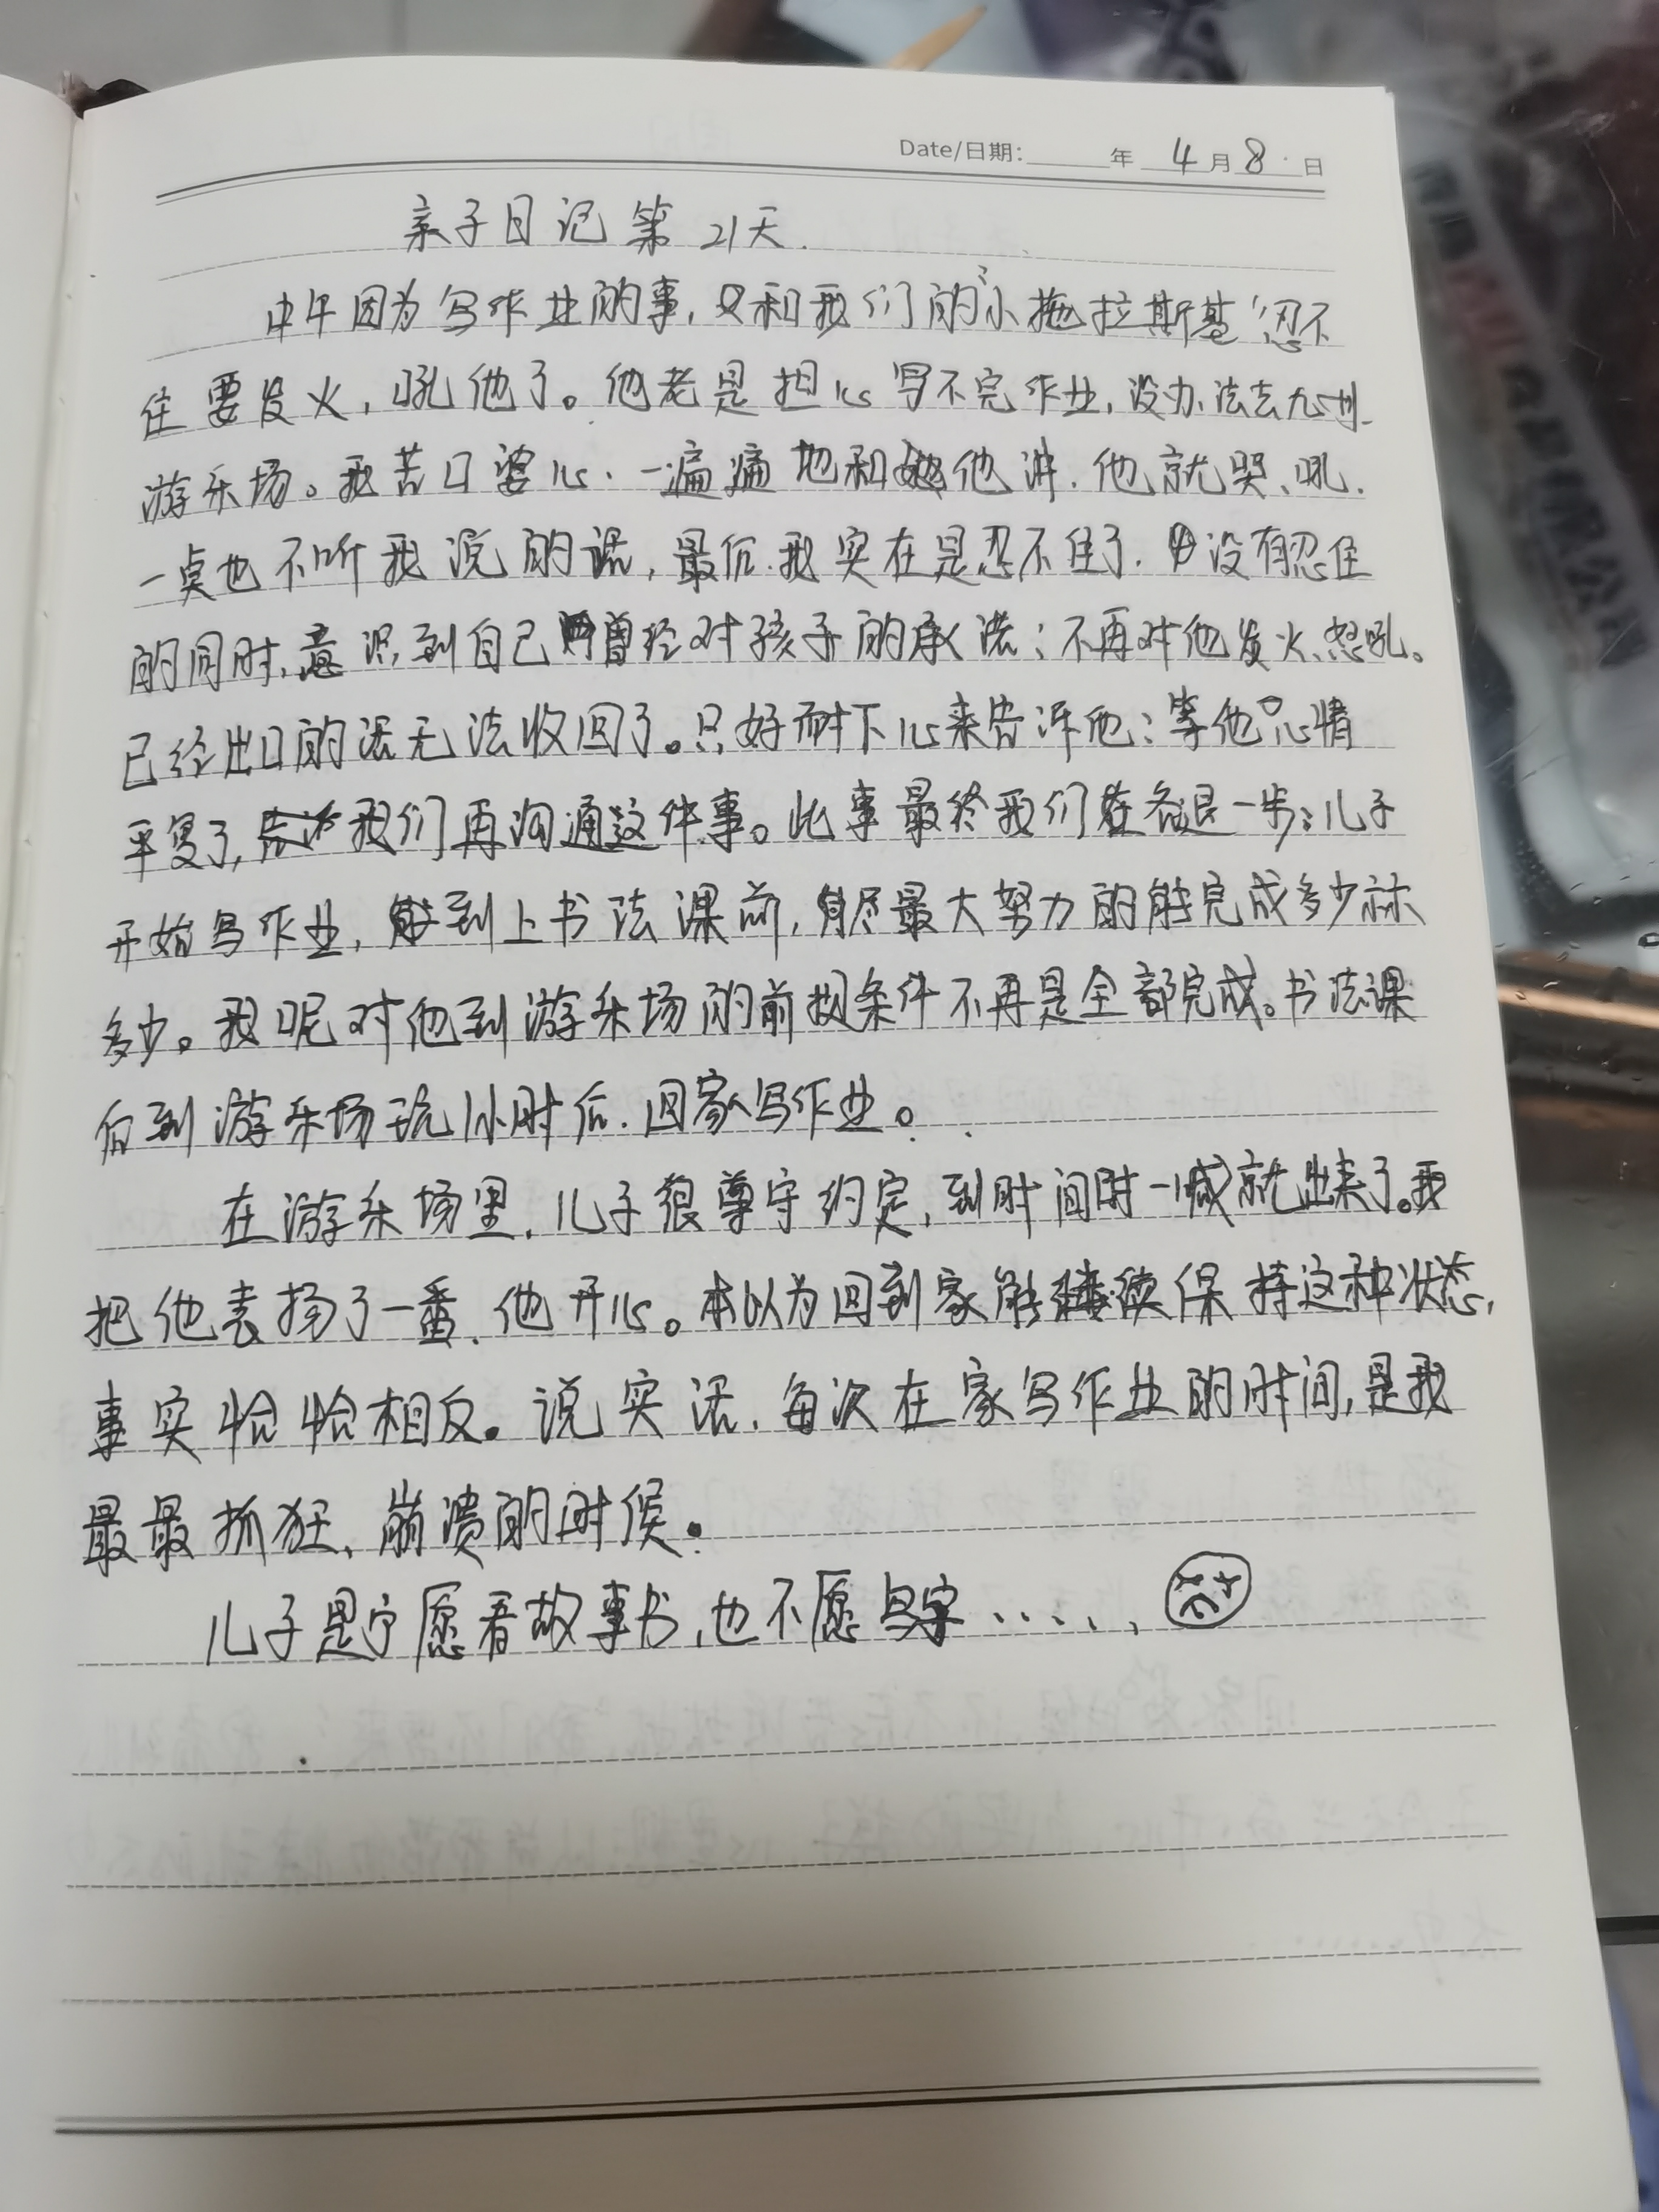 Date/日期: 年 4月8日
亲子日记第21天.
中午因为写作业的事,又和我们的"小拖拉斯基"忍不
住要发火,吼他了。他老是担心写不完作业,没办法去九州
游乐场。我苦口婆心、一遍遍地和他讲.他就哭、吼.
一点也不听我说的话,最后.我实在是忍不住了.没有忍住
的同时,意识到自己曾经对孩子的承诺:不再对他发火、怒吼。
已经出口的话无法收回了。只好耐下心来告诉他:等他心情
平复了,我们再沟通这件事。此事最终我们各退一步:儿子
开始写作业,到上书法课前,尽最大努力的能完成多少就
多少。我呢对他到游乐场的前提条件不再是全部完成。书法课
后到游乐场玩1小时后.回家写作业。
在游乐场里,儿子很尊守约定,到时间时一喊就出来了。我
把他表扬了一番.他开心。本以为回到家能继续保持这种状态,
事实恰恰相反。说实话.每次在家写作业的时间,是我
最最抓狂、崩溃的时候。
儿子是宁愿看故事书,也不愿写字……